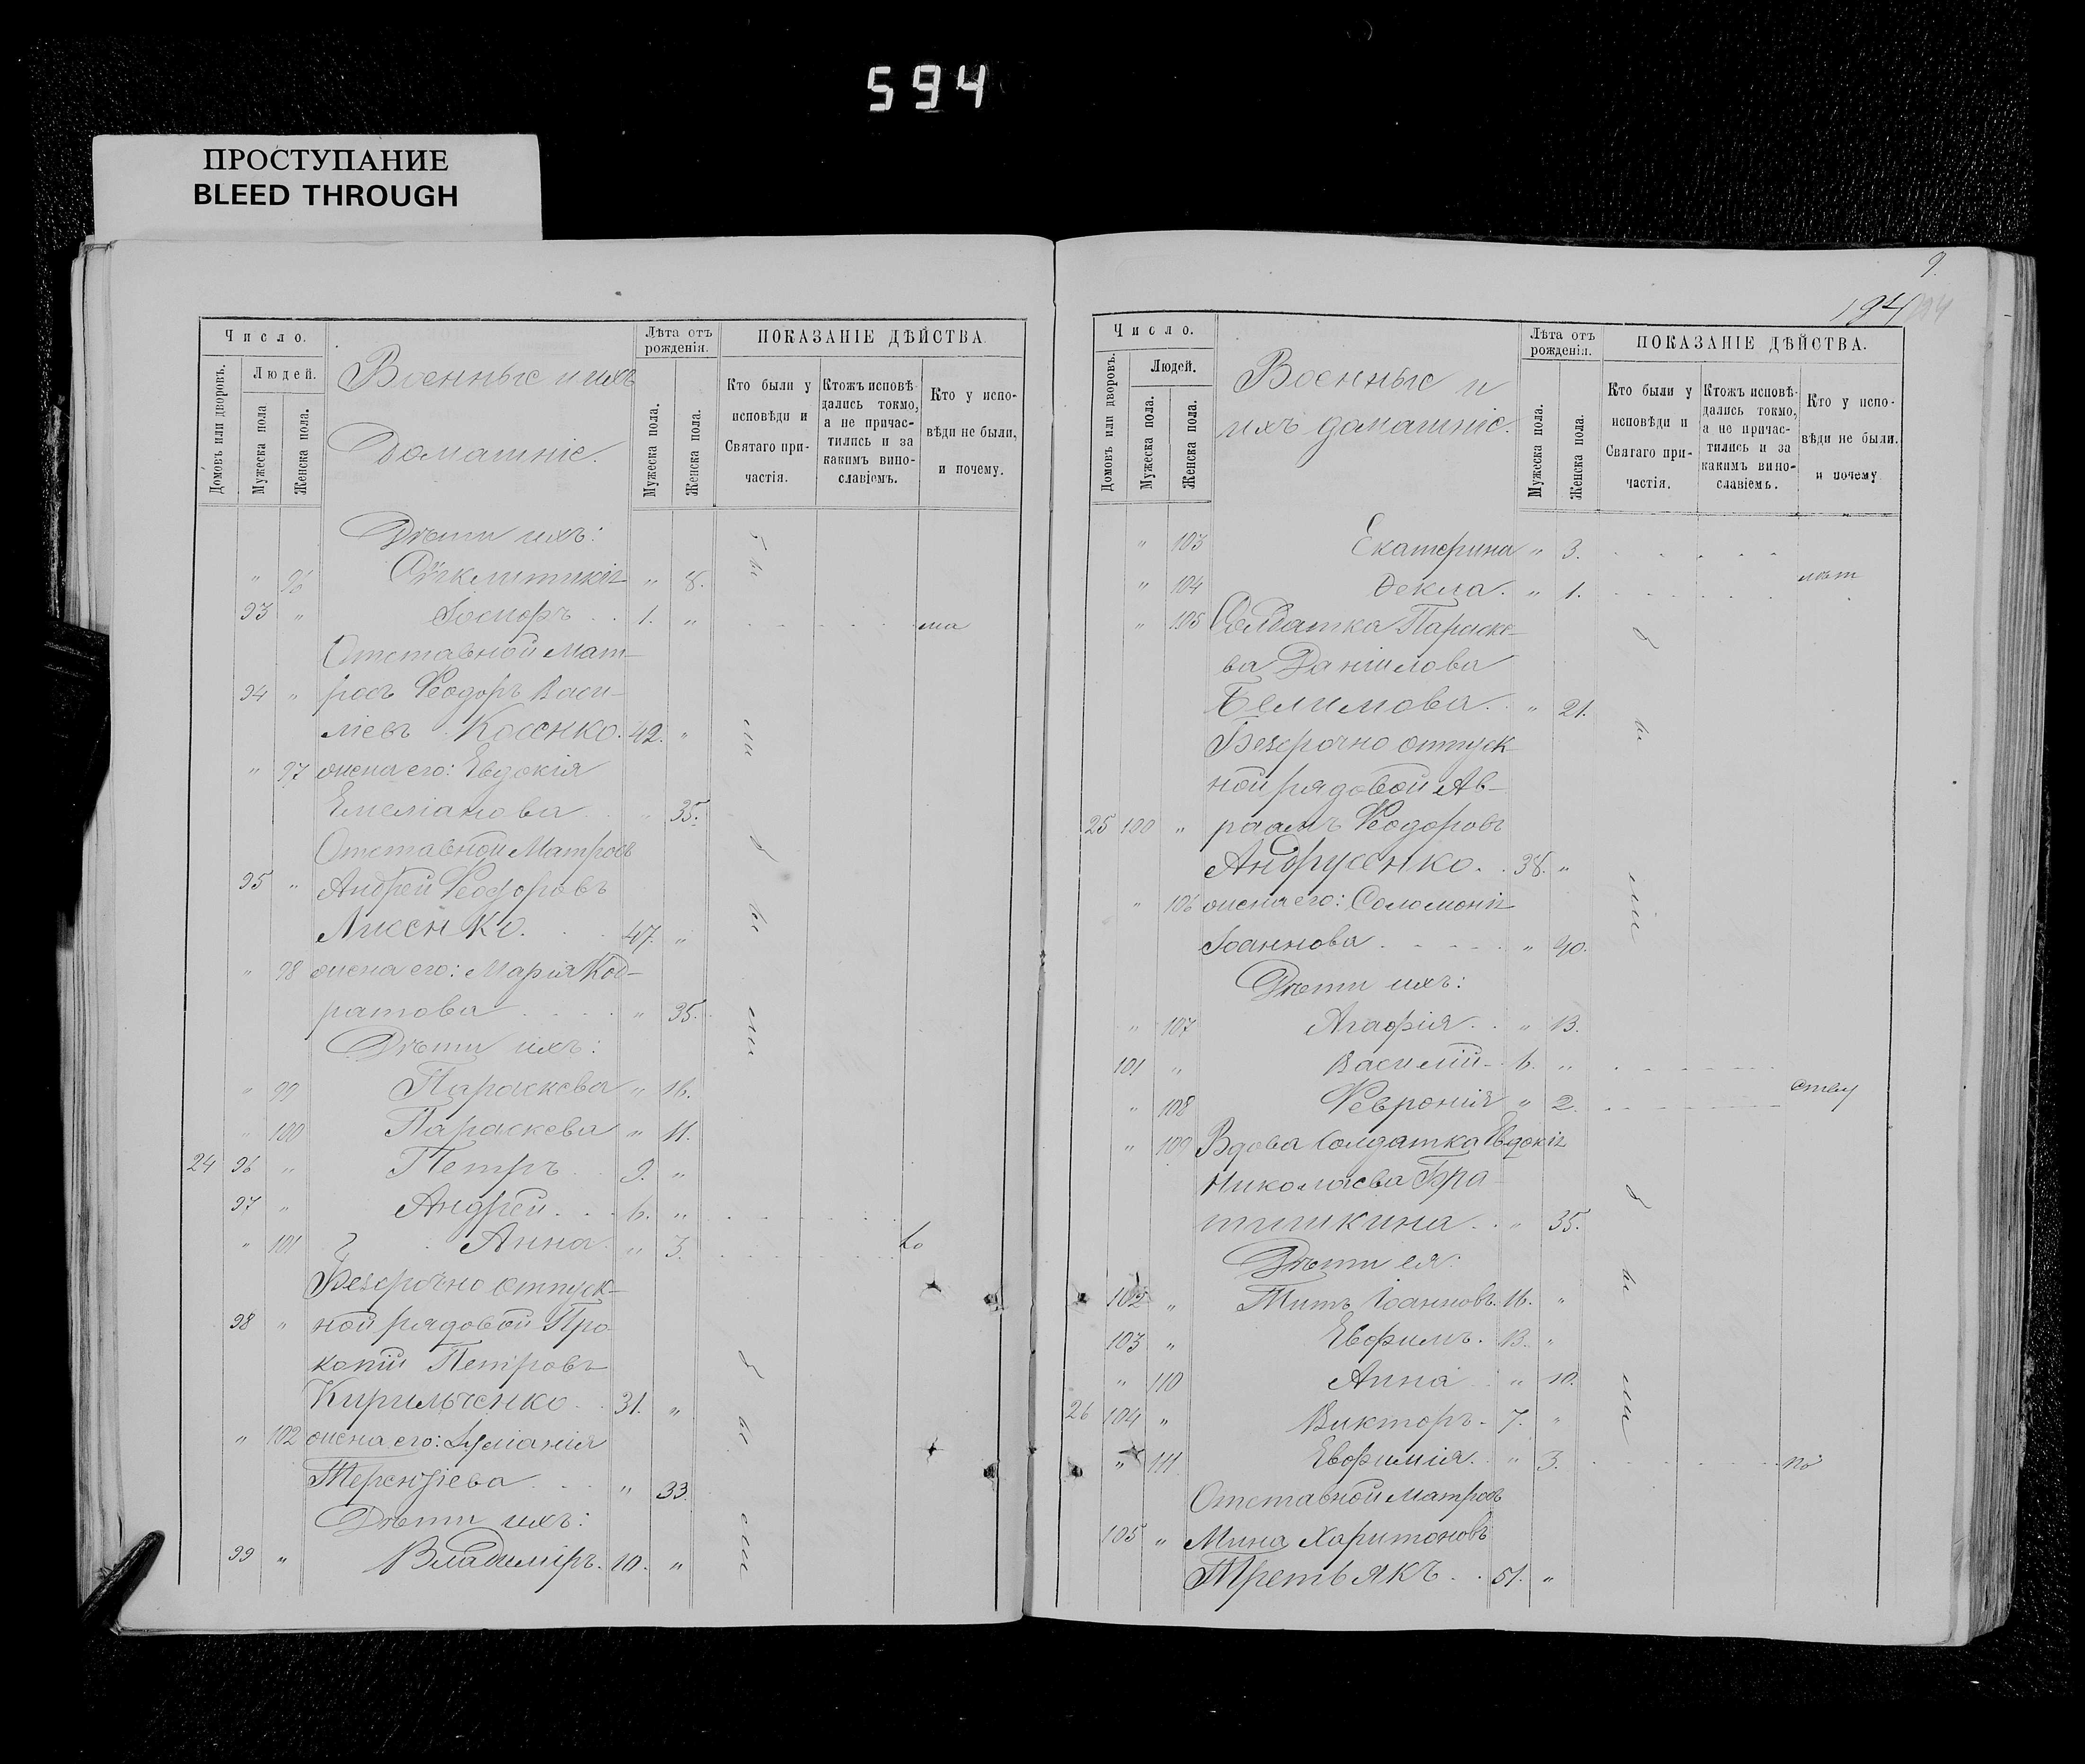 594
ПРОСТУПАНИЕ
BLEED THROUGH
Число.
Домовъ или дворовъ.
Людей.
Мужеска пола
Женска пола.
Военные и ихъ
Домашніе.
Лѣта отъ рожденія.
Мужеска пола.
Женска пола.
ПОКАЗАНІЕ ДѢЙСТВА.
Кто были у исповѣди и Святаго причастія.
Ктожъ исповѣдались токмо, а не причастились и за какимъ винославіемъ.
Кто у исповѣди не были, и почему.
Дѣти ихъ:
" 96 " 8.
93 " 1. " ма
Отставной мат-
94 " росъ Ѳеодоръ Васи-
ліевъ Косенко. 42. "
" 97 жена его: Евдокія
Емеліанова " 35.
Отставной Матросъ
95 " Андрей Ѳеодоровъ
Лисенко. 47. "
" 98 жена его: Марія Код-
ратова " 35.
Дѣти ихъ:
" 99 Параскева " 16.
" 100 Параскева " 11.
24 96 " Петръ 9. "
97 " Андрей 6. "
" 101 Анна " 3. Lo
Безсрочно отпуск-
98 " ной рядовой Про-
копій Петровъ
Кирильченко 31. "
" 102 жена его:
Терентіева " 33.
Дѣти ихъ:
99 " Владиміръ. 10. "
были
были
были
9.
194
Число.
Домовъ или дворовъ.
Людей.
Мужеска пола.
Женска пола.
Военные и
ихъ домашніе.
Лѣта отъ рожденія.
Мужеска пола.
Женска пола.
ПОКАЗАНІЕ ДѢЙСТВА.
Кто были у исповѣди и Святаго причастія.
Ктожъ исповѣдались токмо, а не причастились и за какимъ винославіемъ.
Кто у исповѣди не были. и почему
" 103 Екатерина " 3.
" 104 Ѳекла. " 1. лѣт
" 105 Солдатка Параске-
ва Даніилова
Белимова " 21.
Безсрочно отпуск-
ной рядовой Ав-
25 100 " раамъ Ѳеодоровъ
Андрусенко. 38. "
" 106 жена его: Соломонія
Іоаннова " 40.
Дѣти ихъ:
" 107 Агафія " 13.
101 " Василій 6. "
" 108 Ѳевронія " 2. ству
" 109 Вдова солдатка Евдокія
Николаева Бра-
тишкина " 35.
Дѣти ея:
102 " Титъ Іоанновъ. 16. "
103 " Евфимъ. 13. "
" 110 Анна " 10.
26 104 " Викторъ 7. "
" 111 Евфимія. " 3. по
Отставной матросъ
105 " Мина Харитоновъ
Третьякъ 51. "
были
были